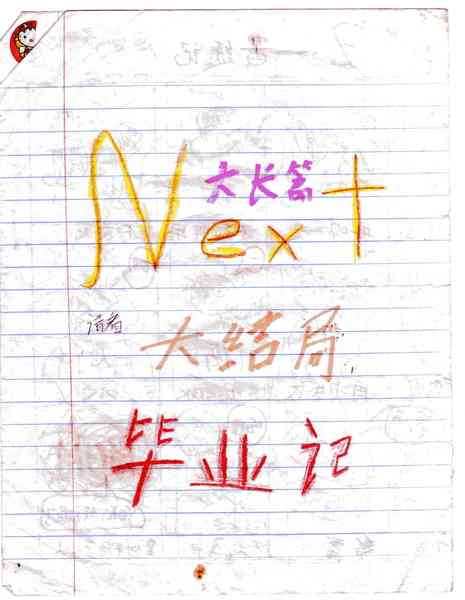 大长篇
Next
大结局
毕业记